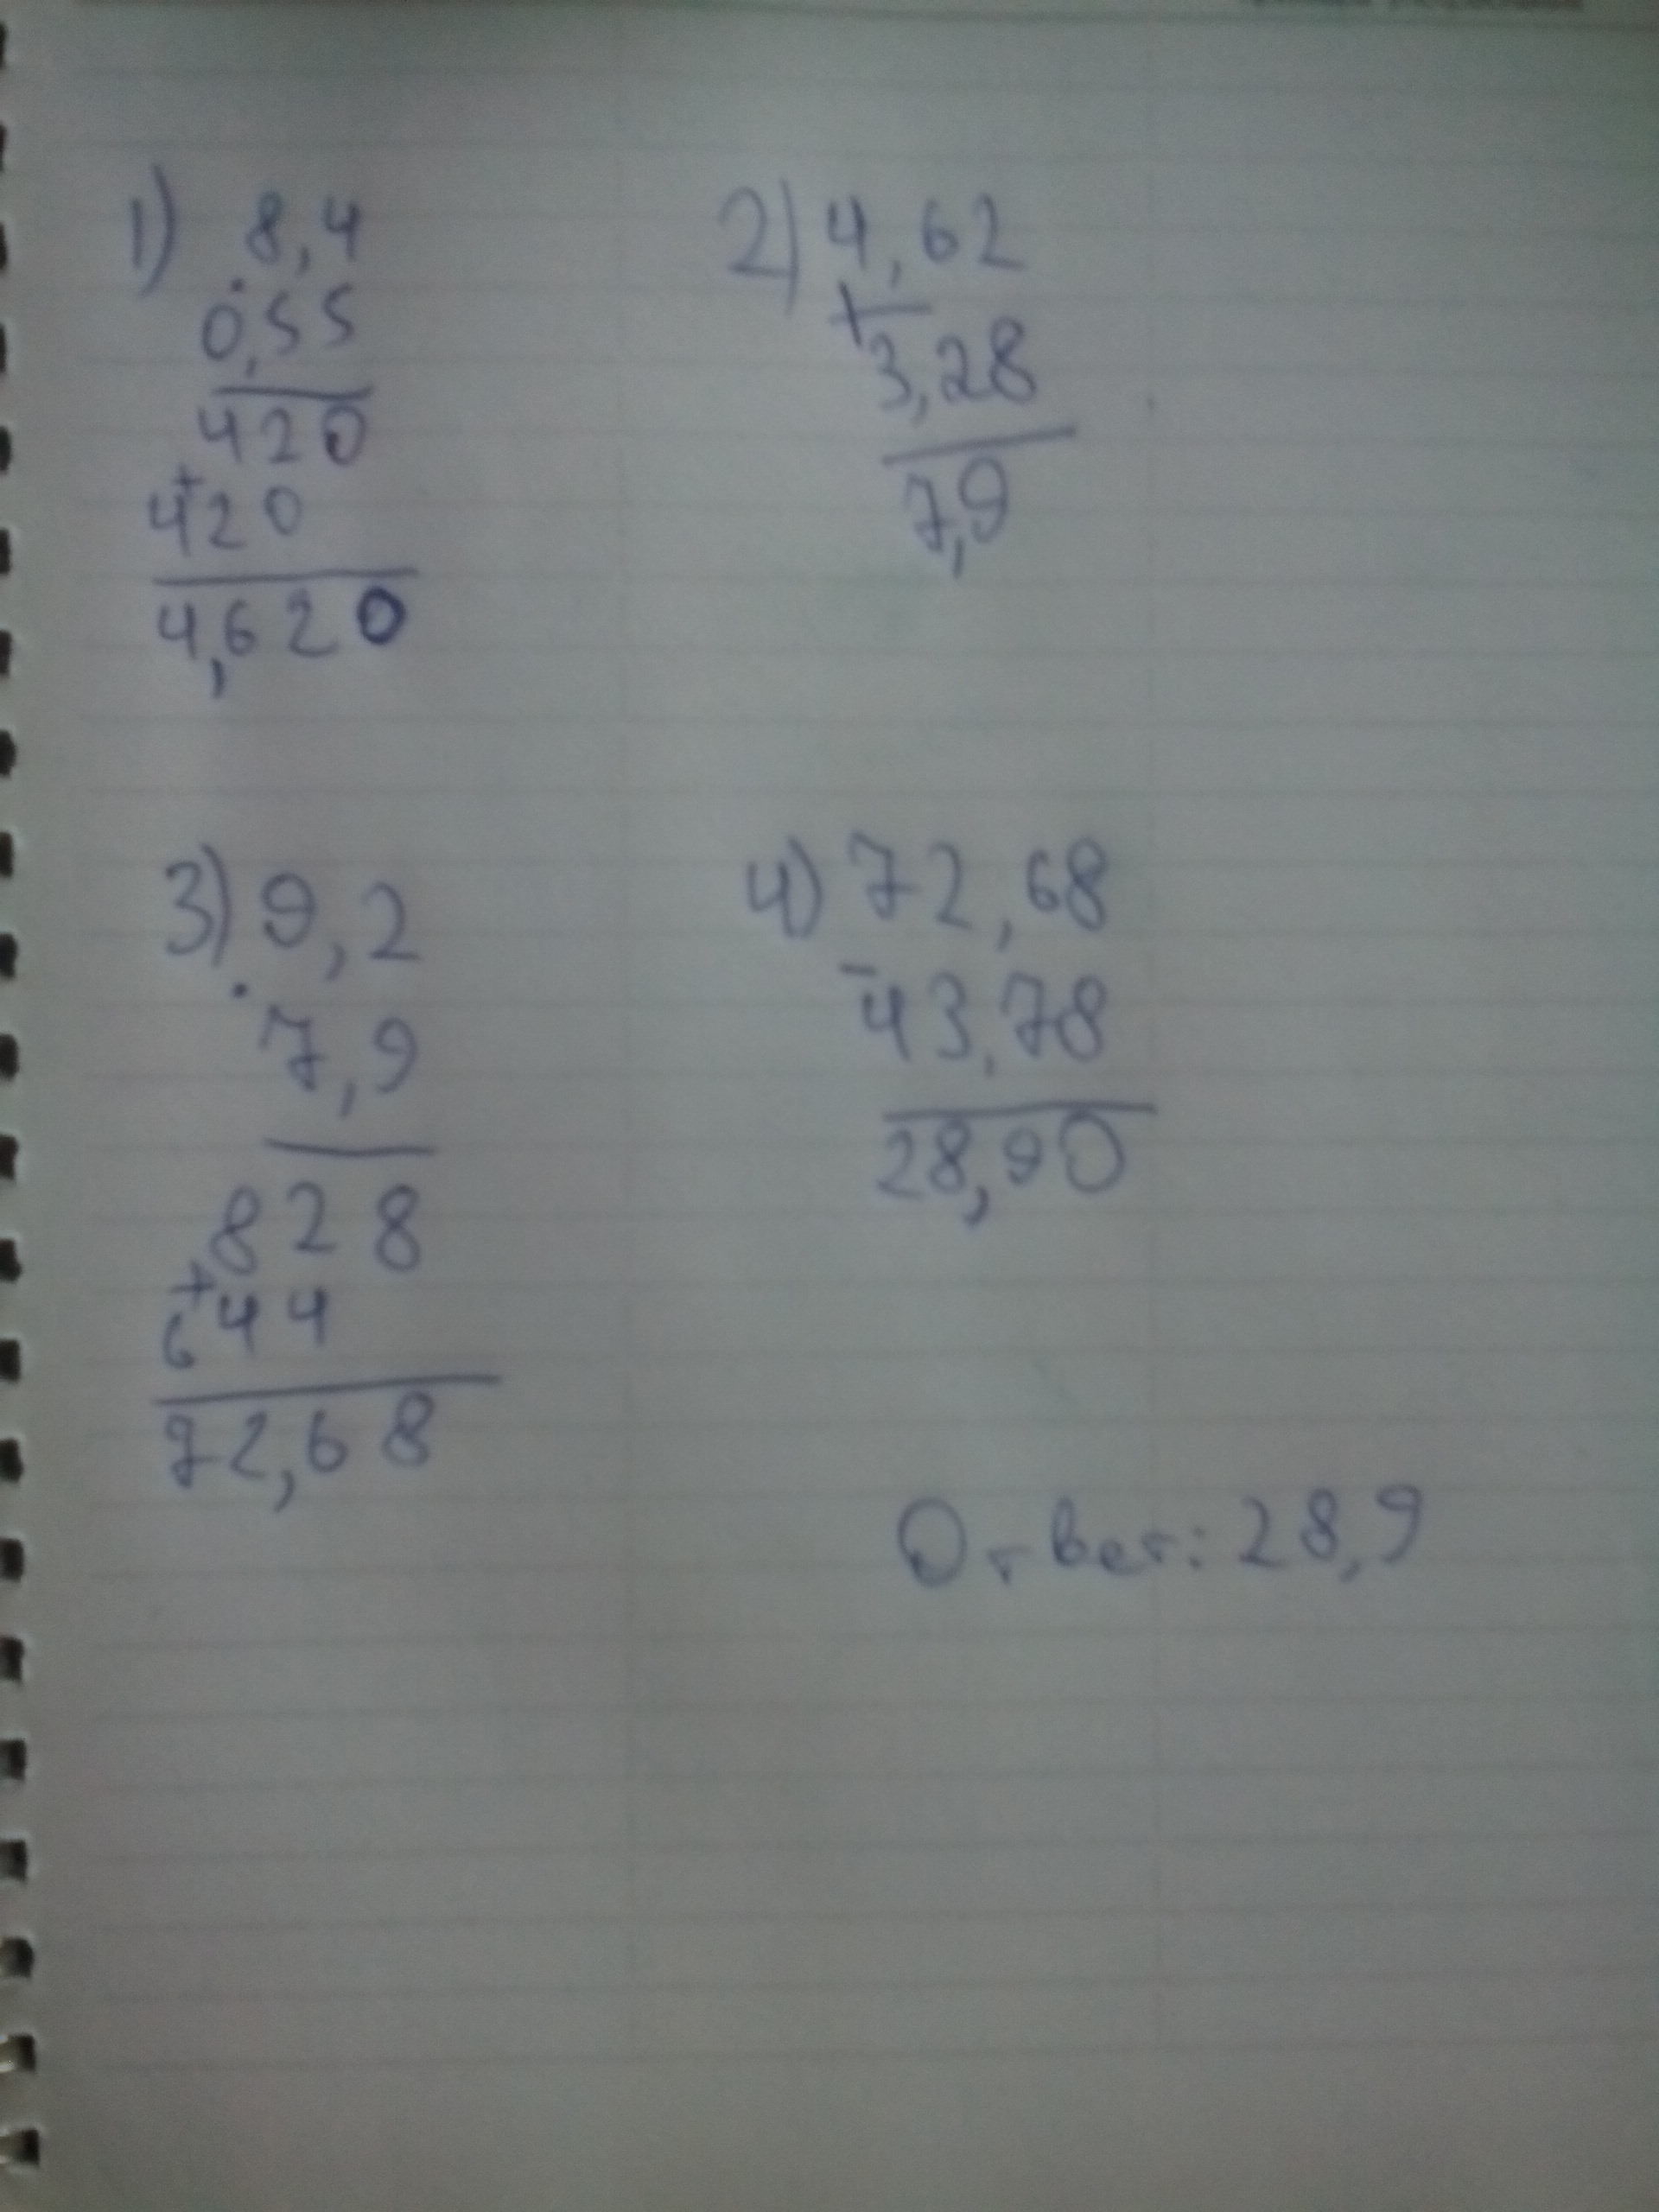 1) 8,4
·
0,55
420
+
420
4,620
2) 4,62
+
3,28
7,9
3) 9,2
·
7,9
828
+
644
72,68
4) 72,68
-
43,78
28,90
Ответ: 28,9